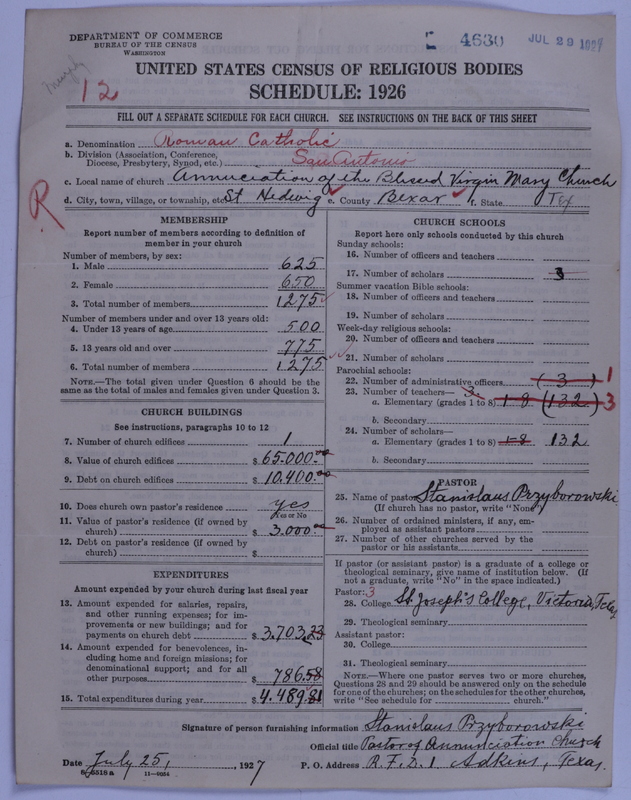 DEPARTMENT OF COMMERCE
BUREAU OF THE CENSUS
WASHINGTON
4630 JUL 29 1927
Murphy
12
UNITED STATES CENSUS OF RELIGIOUS BODIES
SCHEDULE: 1926
FILL OUT A SEPARATE SCHEDULE FOR EACH CHURCH. SEE INSTRUCTIONS ON THE BACK OF THIS SHEET
a. Denomination Roman Catholic
b. Division (Association, Conference, Diocese, Presbytery, Synod, etc.) San Antonio
c. Local name of church Annunciation of the Blessed Virgin Mary Church
d. City, town, village, or township, etc. St Hedwig e. County Bexar f. State Tex
R
MEMBERSHIP
Report number of members according to definition of
member in your church
Number of members, by sex:
1. Male 625
2. Female 650
3. Total number of members 1275
Number of members under and over 13 years old:
4. Under 13 years of age 500
5. 13 years old and over 775
6. Total number of members 1275
NOTE.—The total given under Question 6 should be the
same as the total of males and females given under Question 3.
CHURCH BUILDINGS
See instructions, paragraphs 10 to 12
7. Number of church edifices 1
8. Value of church edifices $ 65.000.00
9. Debt on church edifices $ 10,400.00
10. Does church own pastor's residence yes
Yes or No
11. Value of pastor's residence (if owned by
church) $ 3.000.
12. Debt on pastor's residence (if owned by
church) $
EXPENDITURES
Amount expended by your church during last fiscal year
13. Amount expended for salaries, repairs,
and other running expenses; for im-
provements or new buildings; and for
payments on church debt $ 3,703,23
14. Amount expended for benevolences, in-
cluding home and foreign missions; for
denominational support; and for all
other purposes $ 786.58
15. Total expenditures during year $ 4.489.81
CHURCH SCHOOLS
Report here only schools conducted by this church
Sunday schools:
16. Number of officers and teachers
17. Number of scholars 3
Summer vacation Bible schools:
18. Number of officers and teachers
19. Number of scholars
Week-day religious schools:
20. Number of officers and teachers
21. Number of scholars
Parochial schools:
22. Number of administrative officers (3) 1
23. Number of teachers— 3
a. Elementary (grades 1 to 8) 1-8 (132) 3
b. Secondary
24. Number of scholars—
a. Elementary (grades 1 to 8) 1-8 132
b. Secondary
PASTOR
25. Name of pastor Stanislaus Przyborowski
(If church has no pastor, write "None")
26. Number of ordained ministers, if any, em-
ployed as assistant pastors
27. Number of other churches served by the
pastor or his assistants
If pastor (or assistant pastor) is a graduate of a college or
theological seminary, give name of institution below. (If
not a graduate, write "No" in the space indicated.)
Pastor: 3
28. College St. Joseph's College, Victoria, Texas
29. Theological seminary
Assistant pastor:
30. College
31. Theological seminary
NOTE.—Where one pastor serves two or more churches,
Questions 28 and 29 should be answered only on the schedule
for one of the churches; on the schedules for the other churches,
write "See schedule for church."
Signature of person furnishing information Stanislaus Przyborowski
Official title Pastor of Annunciation Church
Date July 25, 1927 P. O. Address R.F.D. 1 Adkins, Texas.
8—5518 a 11—9034